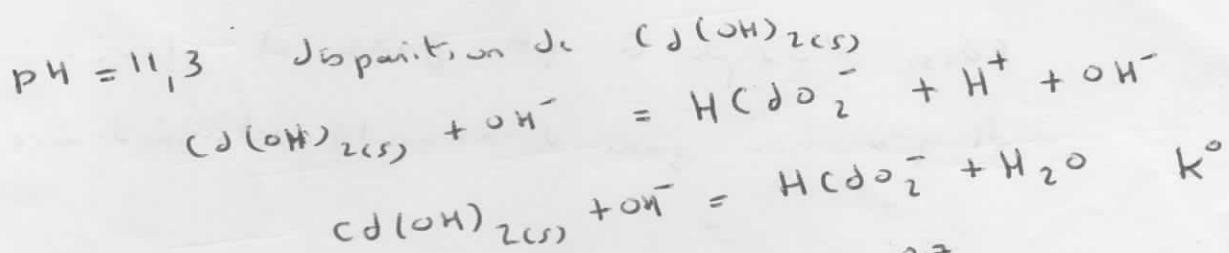 pH = 11,3 disparition de Cd(OH)₂₍ₛ₎
Cd(OH)₂₍ₛ₎ + OH⁻ = HCdO₂⁻ + H⁺ + OH⁻
Cd(OH)₂₍ₛ₎ + OH⁻ = HCdO₂⁻ + H₂O k°